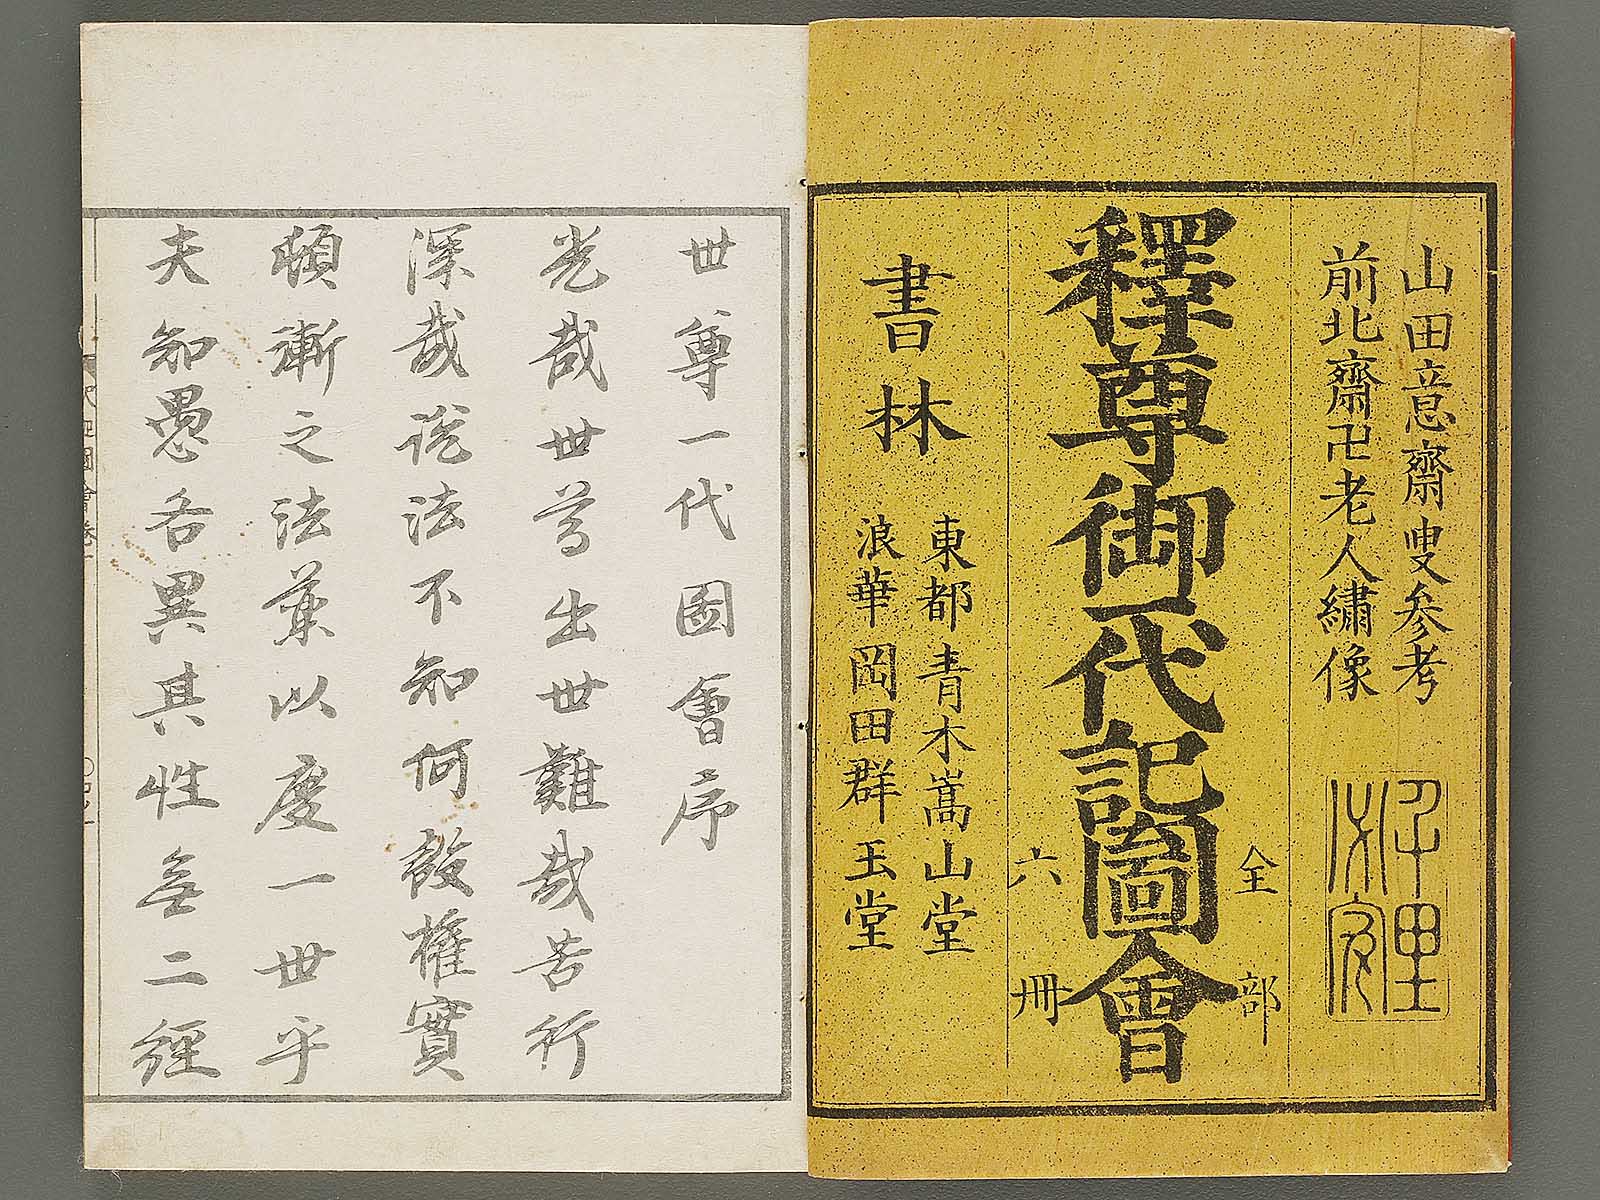 山田意齋叟参考
前北齋卍老人繡像
釋尊御一代記圖會
全部
六冊
書林
東都青木嵩山堂
浪華岡田群玉堂
世尊一代圖會序
光哉世尊出世難哉苦行
深哉説法不知何設權實
頓漸之法葉以度一世乎
夫知愚各異其性無二經